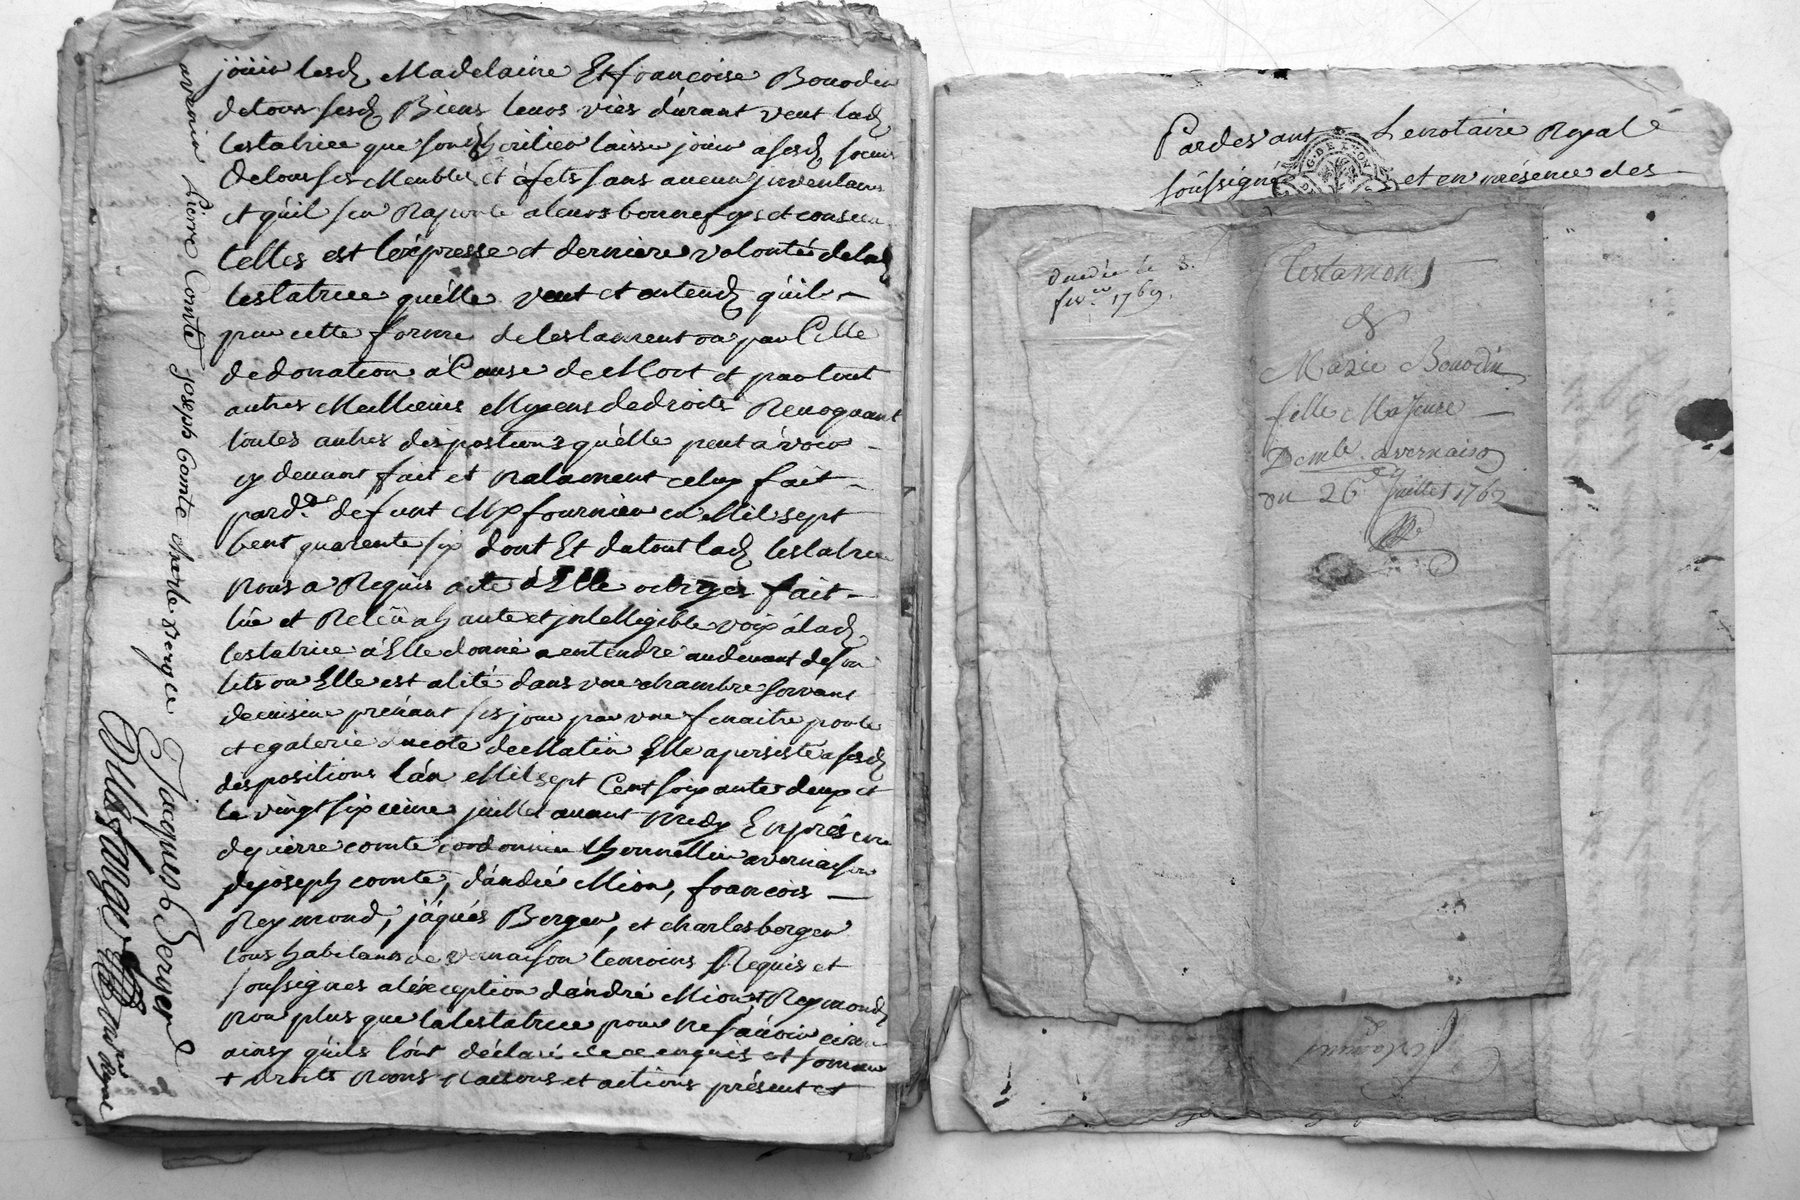 jöüir lesd. Madelaine Et françoise Bourdin
detous sesd. Biens leurs viës dúrant veut lad.
testatrice que sond. heritier laisse joüir a sesd. soeurs
De tous ses Meubles et éfets sans aucun jnventaire
et quil sen Raporte aleurs bonnefoys et
telles est léxpresse et derniere volonté delad.
testatrice quélle veut et entend. quil
par cette forme de testament ou par Celle
dedonation á Cause de Mort et partout
autres Meilleurs Moyens dedroits Revoquant
toutes autres dispostions quélle peut avoir
cy devant fait et notament celuy fait
pard.t defunt Me fournier en Mil sept
Cent quarente six dont Et dutout lad. testatrice
Nous a Requis acte á Elle octroyés fait
lüe et Relëü a haute et jntelligible voix álad.
testatrice á Elle donné a entendre audevant deson
lits ou Elle est alité dans une chambre servant
de cuisine prénant ses jour par une fenaitre porte
et galerie du coté de Matin Elle a persisté a sesd.
dispositions lán Mil sept Cent soixante deux et
le vingt sixieme juillet avant Midy En présence
de pierre comte cordonnier avernaison
de joseph comte, dándré Mion, françois
Reymond, jáques Berger, et charles berger
tous habitans de vernaison temoins Requis et
soussignes aléxception dándré Mion et Reymond
Non plus que la testatrice pour ne sávoir écrire
ainsy quils lónt déclaré de ce enquis et sommé
+ droits Noms Raisons et actions présent et
avernaison pierre Conte joseph Comte charle Berger
Jaques Berger
Dulsange N.re Royal
Pardevant Le notaire Royal
soussigné et en présence des
G. DE LYON
5.
1769.
Testament
de
Marie Bourdin
fille Majeure
Demte. avernaison
du 26e Juillet 1762
Testament